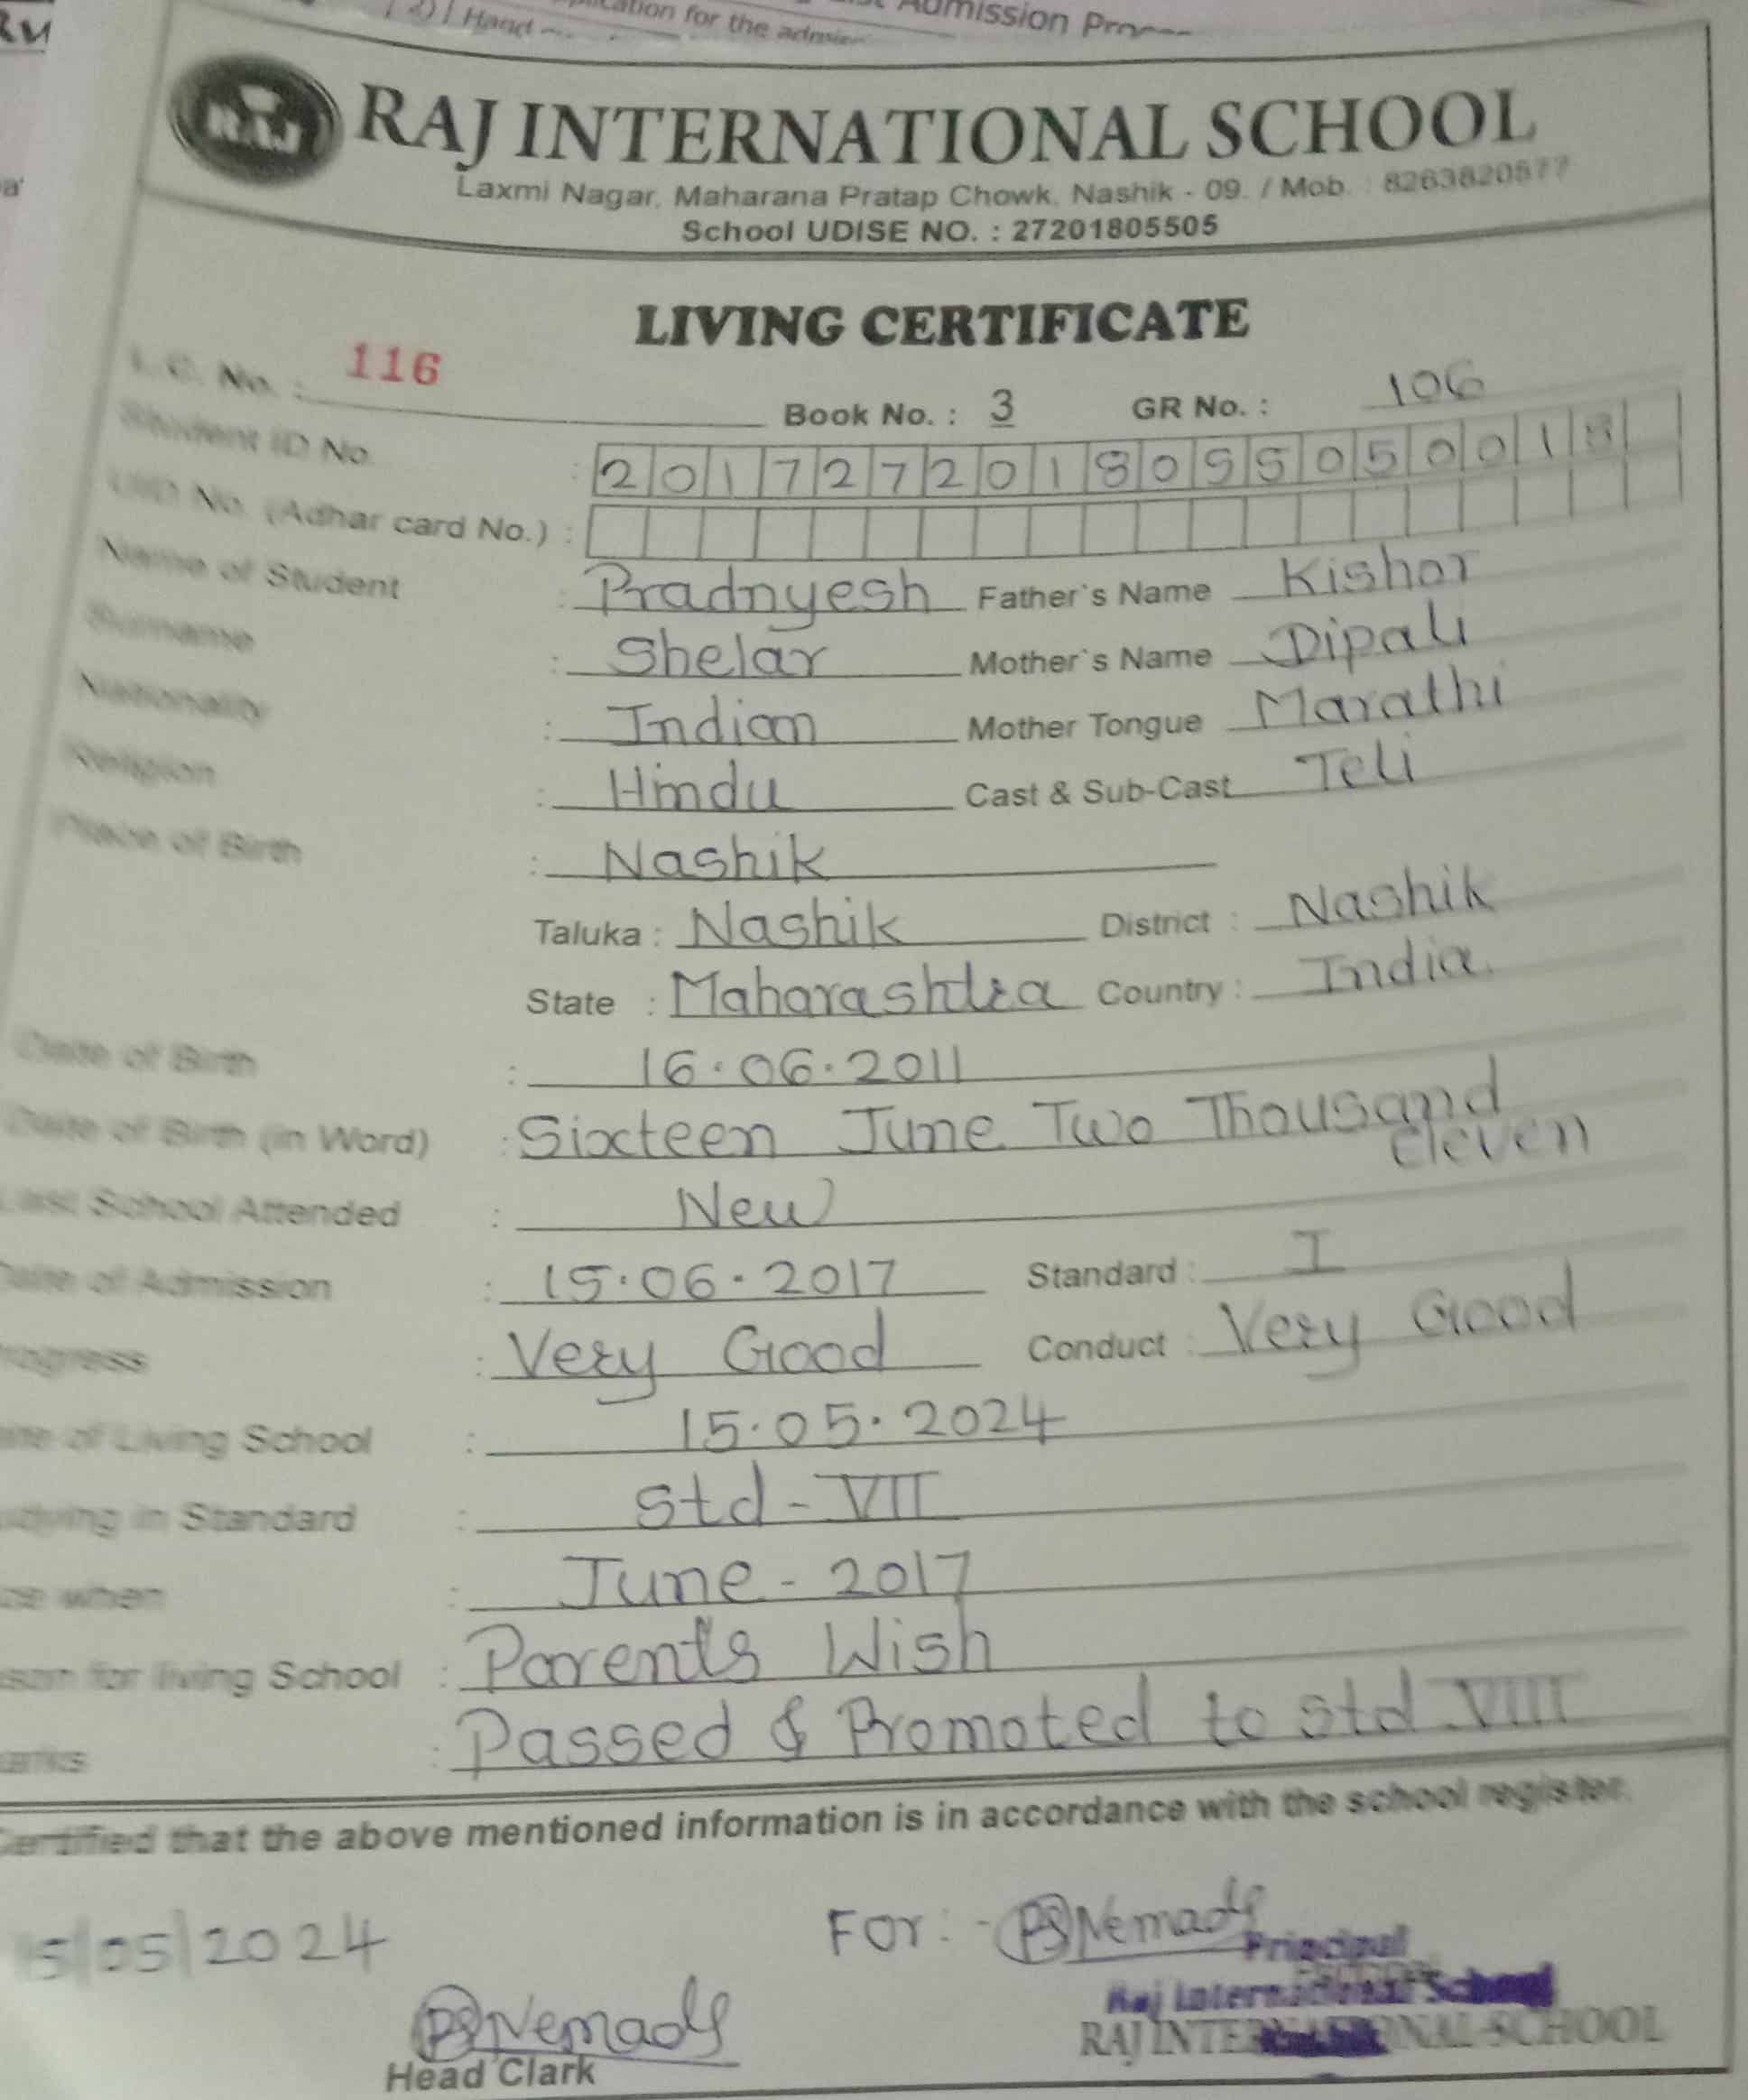 Admission
cation for the
2) Hand
RAJ INTERNATIONAL SCHOOL
Laxmi Nagar, Maharana Pratap Chowk, Nashik - 09. / Mob. : 8263820577
School UDISE NO. : 27201805505
LIVING CERTIFICATE
L. C. No. : 116 Book No. : 3 GR No. : 106
Student ID No. : 2017272018055050018
UID No. (Adhar card No.) :
Name of Student : Pradnyesh Father's Name Kishor
Surname : Shelar Mother's Name Dipali
Nationality : Indian Mother Tongue Marathi
Religion : Hindu Cast & Sub-Cast Teli
Place of Birth : Nashik
Taluka : Nashik District : Nashik
State : Maharashtra Country : India.
Date of Birth : 16.06.2011
Date of Birth (in Word) : Sixteen June Two Thousand
eleven
Last School Attended : New
Date of Admission : 15.06.2017 Standard : I
rogress : Very Good Conduct : Very Good
ate of Living School : 15.05.2024
udying in Standard : Std - VII
ce when : June - 2017
son for living School : Parents Wish
arks : Passed & Promoted to std VIII
Certified that the above mentioned information is in accordance with the school register.
15/05/2024 For :- PSNemade
Principal
Raj International School
PSNemade RAJ INTERNATIONAL SCHOOL
Head Clark